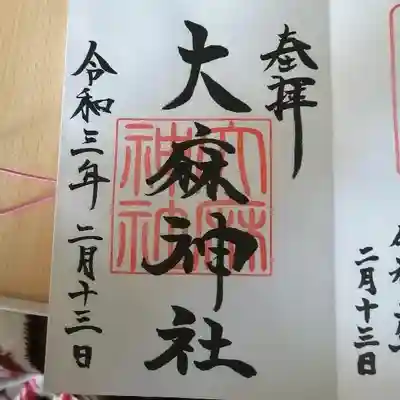 奉拝
大麻神社
大麻
神社
令和三年 二月十三日
二月十三日